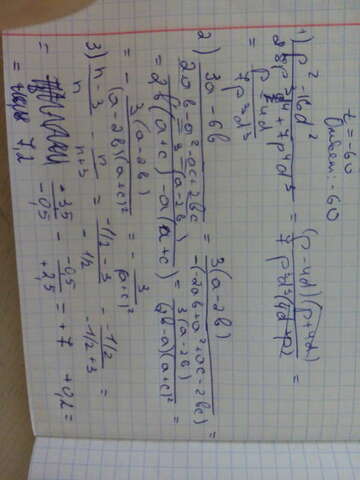 t = -60
Ответ: -60
1) (p² - 16d²) / (28p³d⁴ + 7p⁴d³) = ((p - 4d)(p + 4d)) / (7p³d³(4d + p)) =
= (p - 4d) / (7p³d³)
2) (3a - 6b) / (2ab - a² - ac + 2bc) = 3(a - 2b) / -(-2ab + a² + ac - 2bc) =
= 3(a - 2b) / (2b(a + c) - a(a + c)) = 3(a - 2b) / ((2b - a)(a + c)²) =
= - 3(a - 2b) / ((a - 2b)(a + c)²) = - 3 / (a + c)²
3) (n - 3) / n - n / (n + 3) = (-1/2 - 3) / (-1/2) - (-1/2) / (-1/2 + 3) =
= -3,5 / -0,5 - -0,5 / +2,5 = +7 + 0,2 =
= 7,2